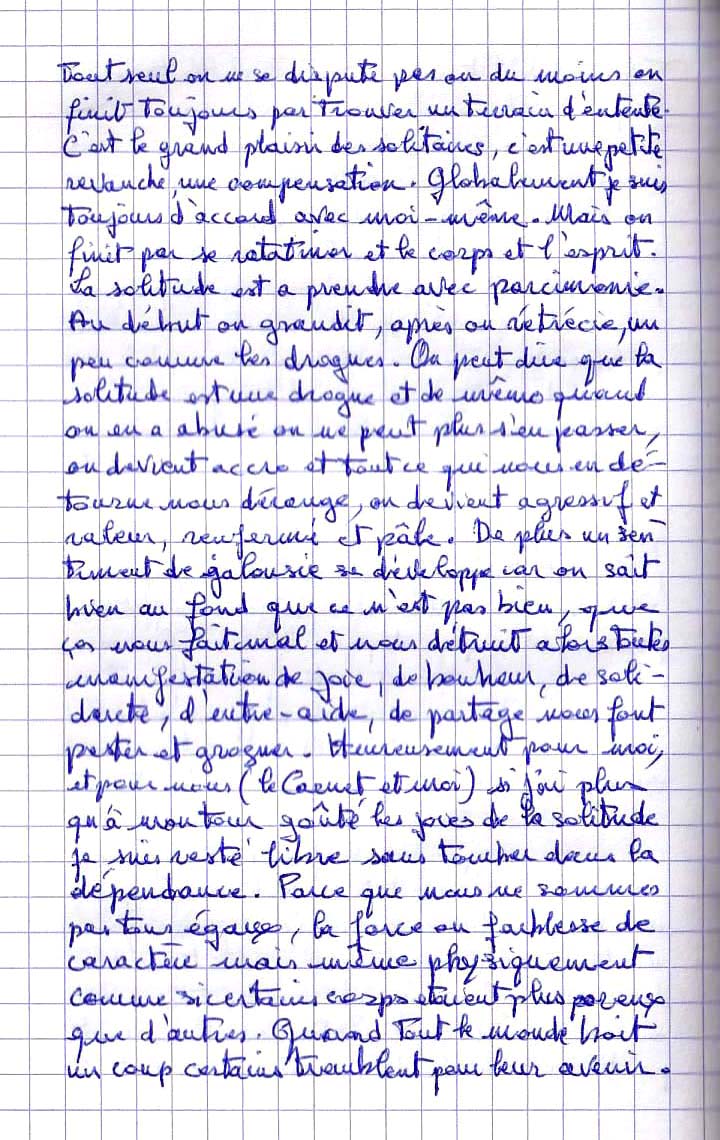 Tout seul on ne se dispute pas ou du moins on
finit toujours par trouver un terrain d'entente.
C'est le grand plaisir des solitaires, c'est une petite
revanche, une compensation. Globalement je suis
toujours d'accord avec moi-même. Mais on
finit par se ratatiner et le corps et l'esprit.
La solitude est a prendre avec parcimonie.
Au début on grandit, après on rétrécie, un
peu comme les drogues. On peut dire que la
solitude est une drogue et de même quand
on en a abusé on ne peut plus s'en passer,
on devient accro et tout ce qui nous en dé-
tourne nous dérange, on devient agressif et
raleur, renfermé et pâle. De plus un sen
timent de jalousie se développe car on sait
bien au fond que ce n'est pas bien, que
ça nous fait mal et nous détruit alors toutes
manifestation de joie, de bonheur, de soli-
darité, d'entre-aide, de partage nous font
pester et grogner. Heureusement pour moi,
et pour nous (le Carnet et moi) si j'ai plus
qu'à mon tour goûté les joies de la solitude
je suis resté libre sans tomber dans la
dépendance. Parce que nous ne sommes
pas tous égaux, la force ou faiblesse de
caractère mais même physiquement
comme si certains corps étaient plus poreux
que d'autres. Quand tout le monde boit
un coup certains tremblent pour leur avenir.